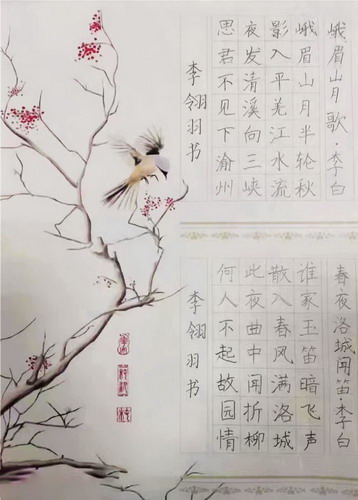 峨眉山月歌·李白
峨眉山月半轮秋
影入平羌江水流
夜发清溪向三峡
思君不见下渝州
李翎羽书
春夜洛城闻笛·李白
谁家玉笛暗飞声
散入春风满洛城
此夜曲中闻折柳
何人不起故园情
李翎羽书